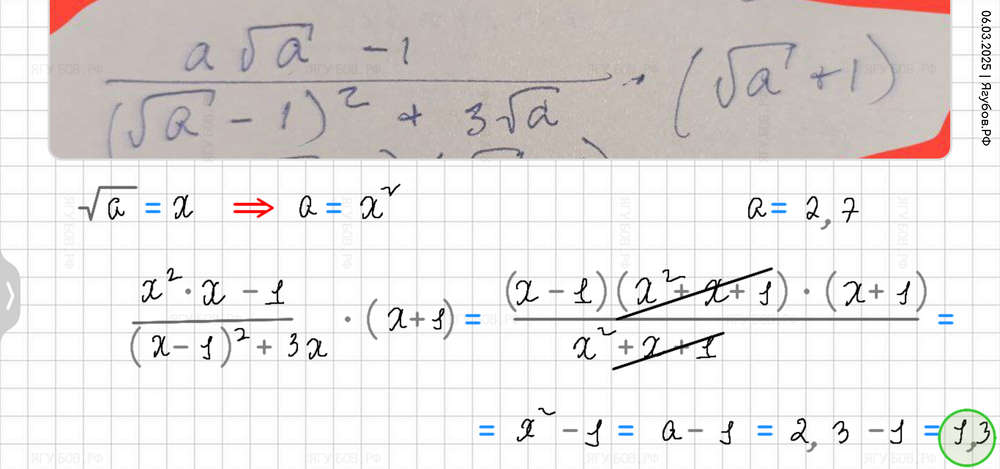 a √a - 1
(√a - 1)² + 3√a · (√a + 1)
√a = x ⇒ a = x²
a = 2,7
x² · x - 1 (x - 1)(x² + x + 1) · (x + 1)
(x - 1)² + 3x · (x + 1) = x² + x + 1 =
= x² - 1 = a - 1 = 2,3 - 1 = 1,3
06.03.2025 | Ягубов.РФ